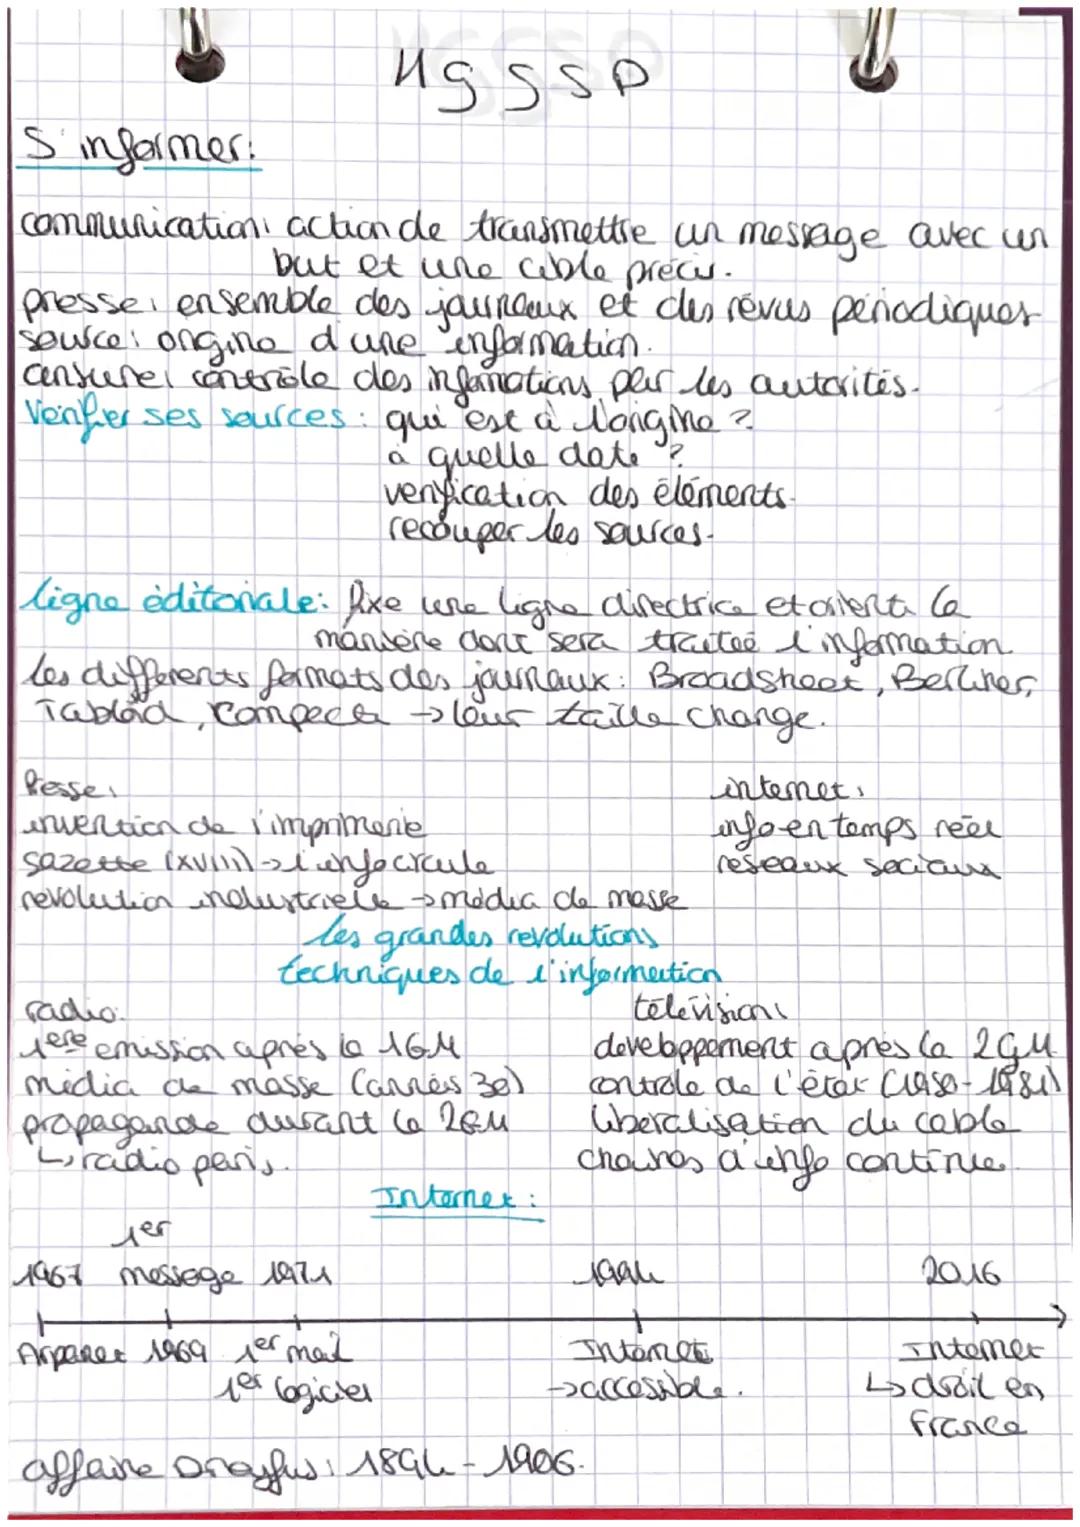 HGSSP
S'informer:
communication: action de transmettre un message avec un
but et une cible précis.
presse: ensemble des journaux et des révus périodiques
source: origine d'une information.
censure: contrôle des informations par les autorités.
Vérifier ses sources: qui est à l'origine ?
à quelle date ?
vérification des éléments.
recouper les sources.
ligne éditoriale: fixe une ligne directrice et orienta la
manière dont sera traiteé l'information
les différents formats des journaux: Broadsheet, Berliner,
Tabloïd, compact → leur taille change.
Presse: internet:
invention de l'imprimerie info en temps réel
gazette (XVIII) → l'info circule réseaux sociaux
révolution industrielle → média de masse
les grandes révolutions
techniques de l'information
radio: télévision:
1ère émission après la 1GM développement après la 2GM
média de masse (années 30) contrôle de l'état (1950-1981)
propagande durant la 2GM libéralisation du cable
↳ radio paris. chaines d'info continue.
Internet:
1er
1967 message 1971 1994 2016
Arpanet 1969 1er mail Internet Internet
1er logiciel → accessible. ↳ droit en
France
affaire Dreyfus: 1894-1906.